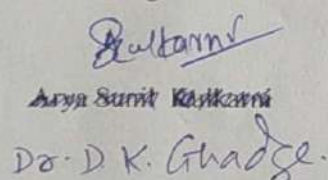 Kulkarni
Arya Sunil Kulkarni
Dr. D. K. Ghadge.